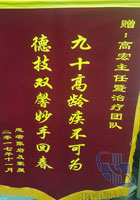 赠：高宏主任暨治疗团队
九十高龄疾不可为
德技双馨妙手回春
患者张浴及家属
二零一七年十一月